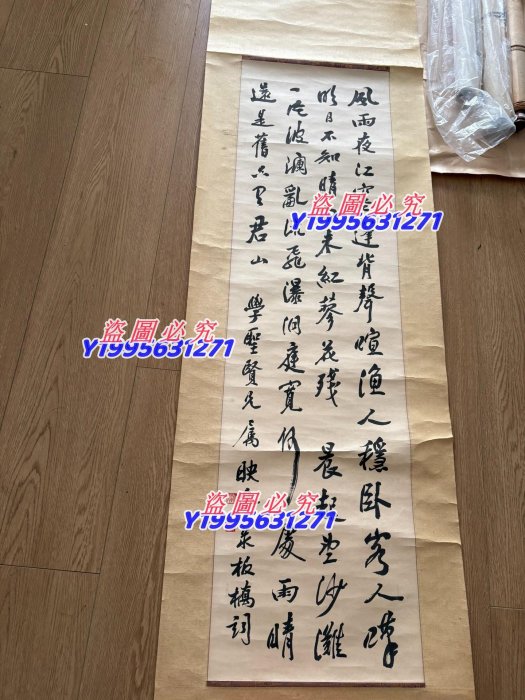 風雨夜江寒篷背聲喧漁人穩臥客人嘆
明日不知晴未紅蓼花殘 晨起望沙灘
一片波瀾亂流飛瀑洞庭寬何處雨晴
還是舊只有君山 學聖賢兄屬 映 录板橋詞
盜圖必究
Y1995631271
盜圖必究
Y1995631271
盜圖必究
Y1995631271